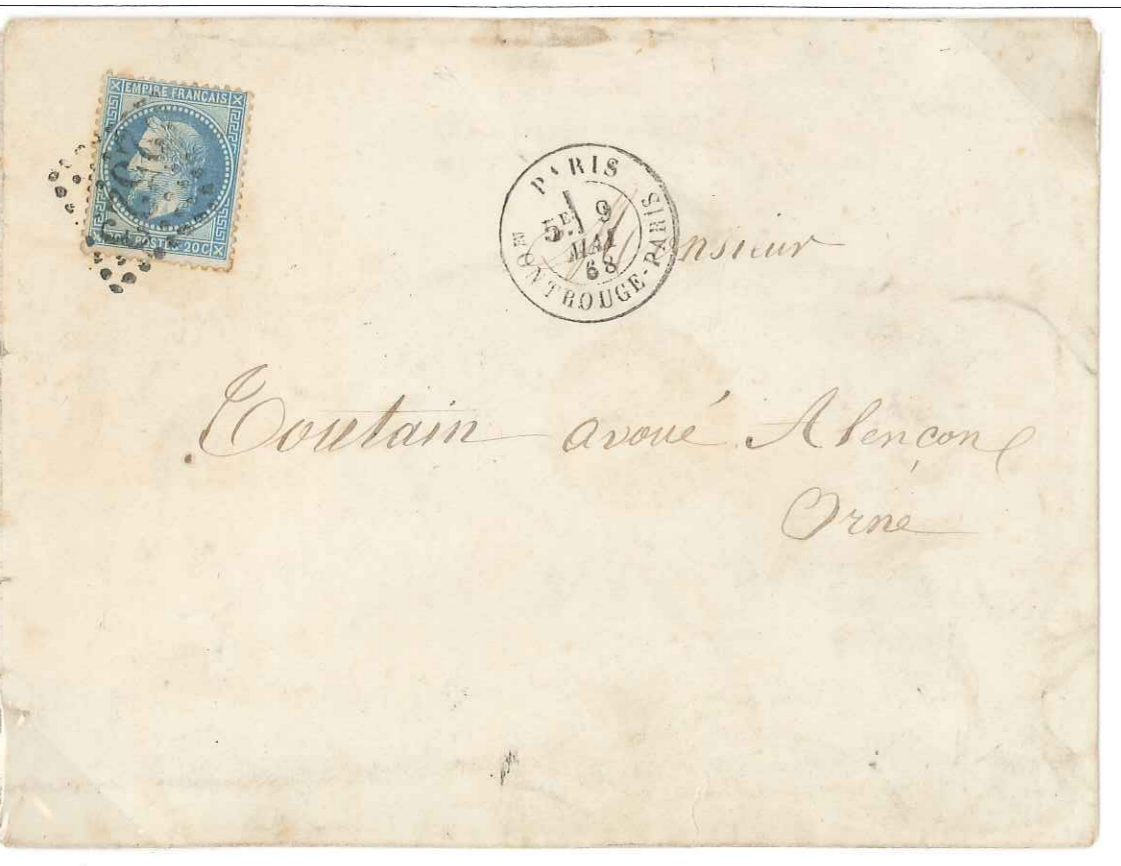 EMPIRE FRANÇAIS
POSTES 20C
PARIS
5E 9
MAI
68
MONTROUGE-PARIS
Monsieur
Toutain avoué Alençon
Orne